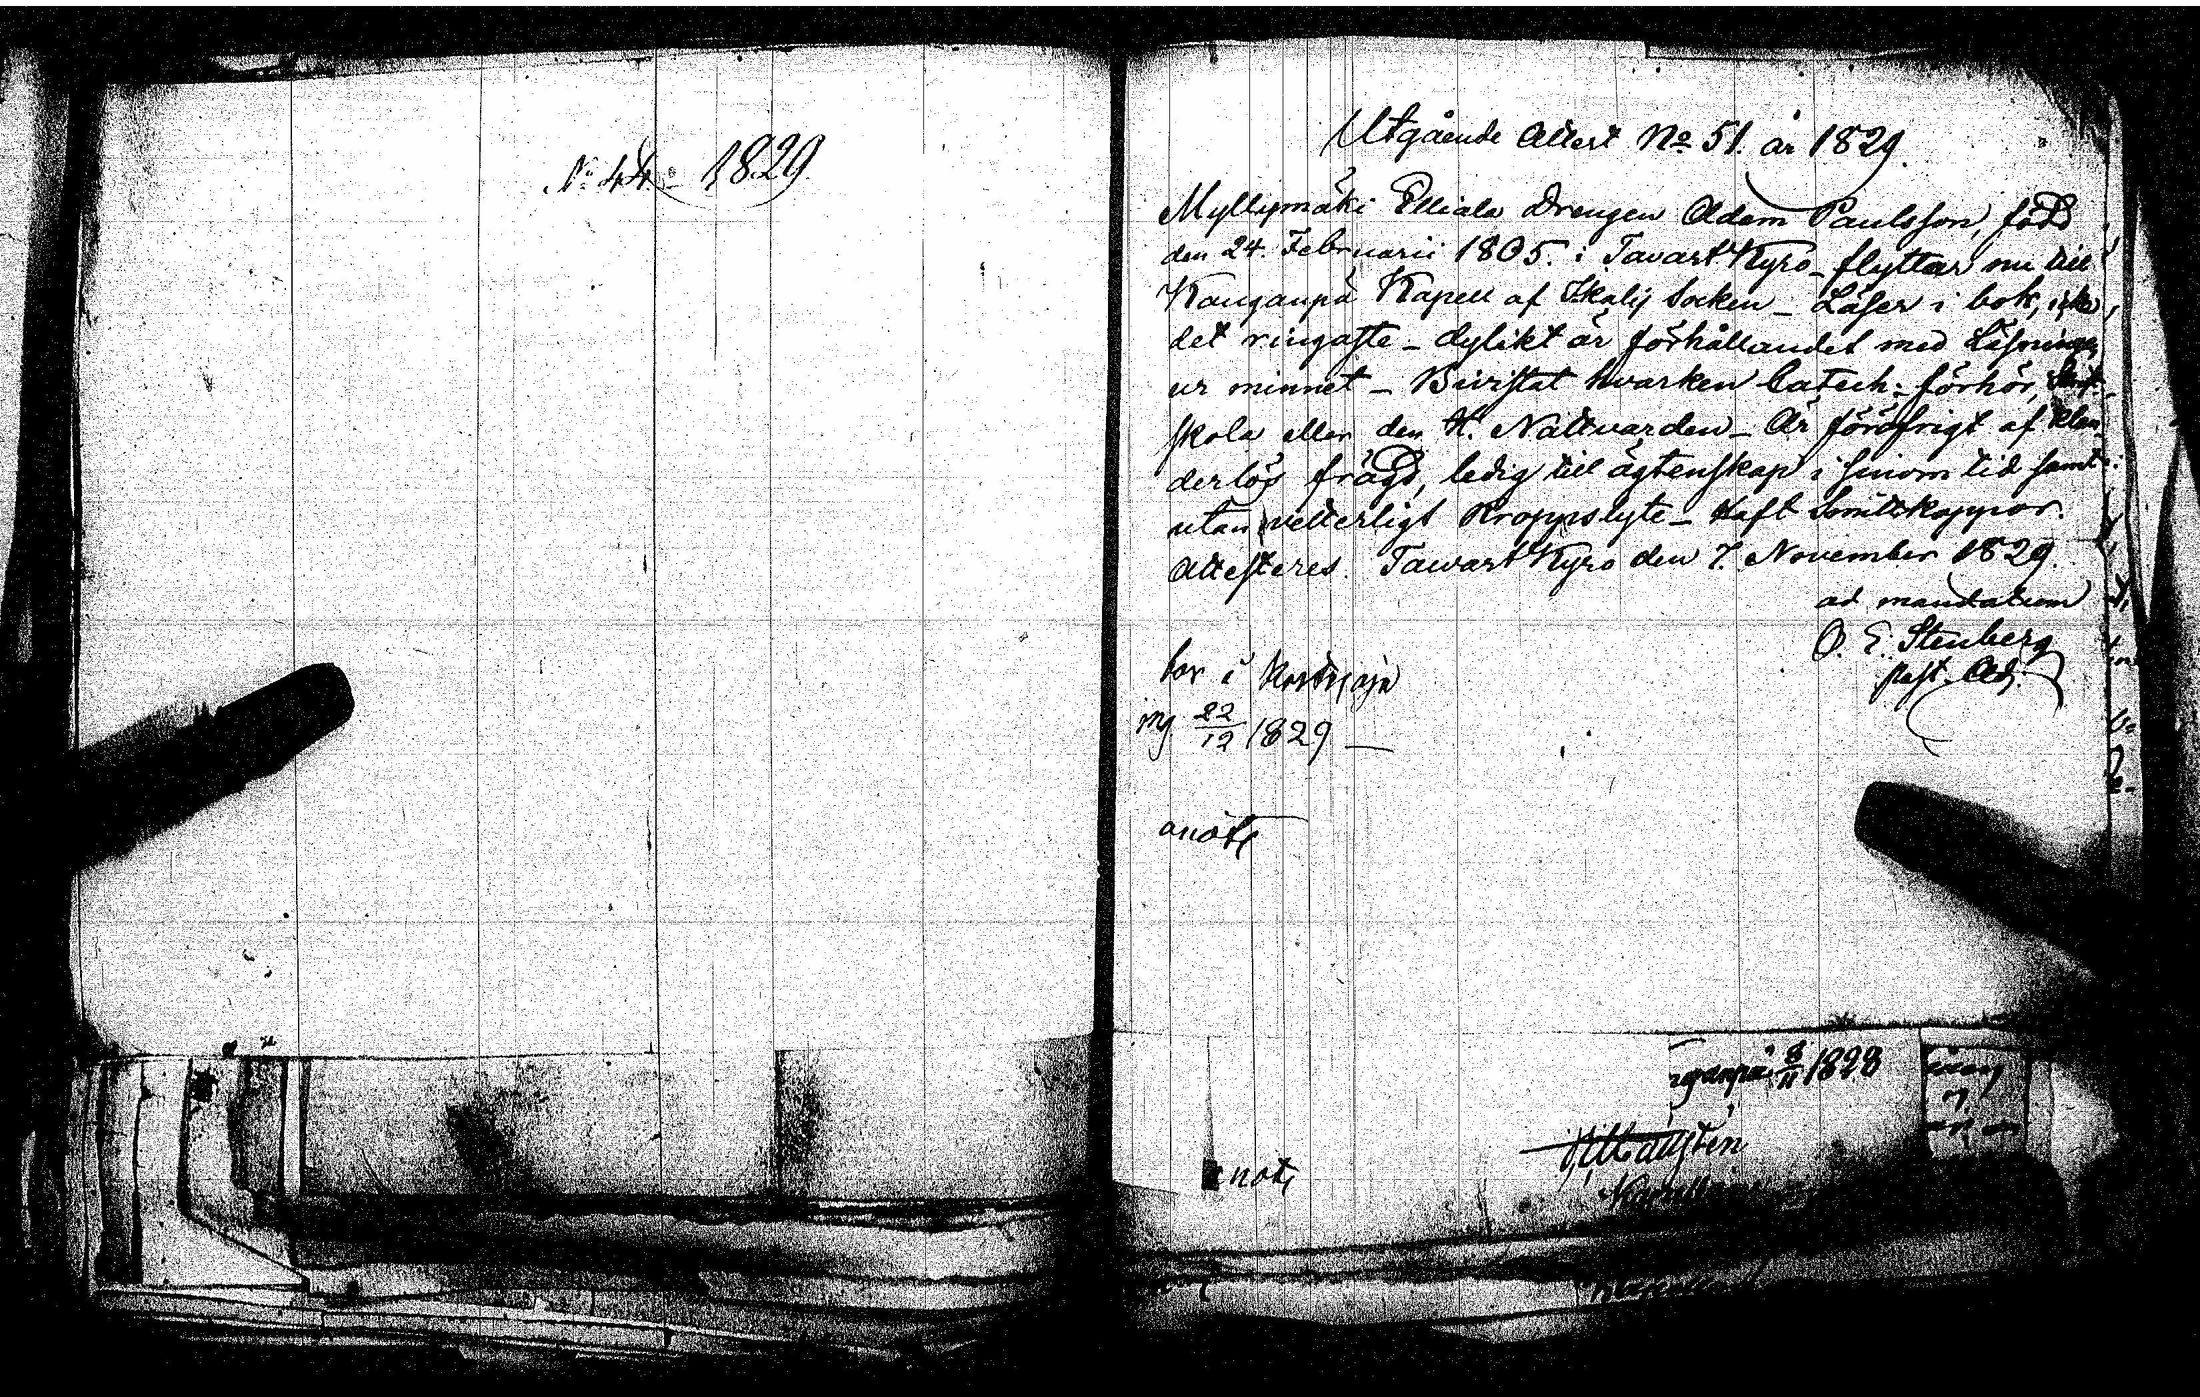 No 44 - 1829
Utgående Attest No 51. år 1829.
Myllymäki Elliala Drengen Adam Paulsson, född
den 24. Februarii 1805. i TavastKyro - flyttar nu till
Kanganpä Kapell af Ikalis Socken - Läser i bok, icke
det ringaste - dylikt är förhållandet med Läsningen
ur minnet - Bivistat hvarken Catech: förhör, Skrift-
skola eller den H. Nattvarden - Är föröfrigt af klan
derlös frägd, ledig till ägtenskap i sinom tid samt
utan vetterligt Kroppslyte - Haft Smittkoppor.
Attesteres. TawastKyro den 7. November 1829.
ad mandatum
O. E. Stenberg
past. Adj.
bor i
22/12 1829
anoterad
8/11 1828